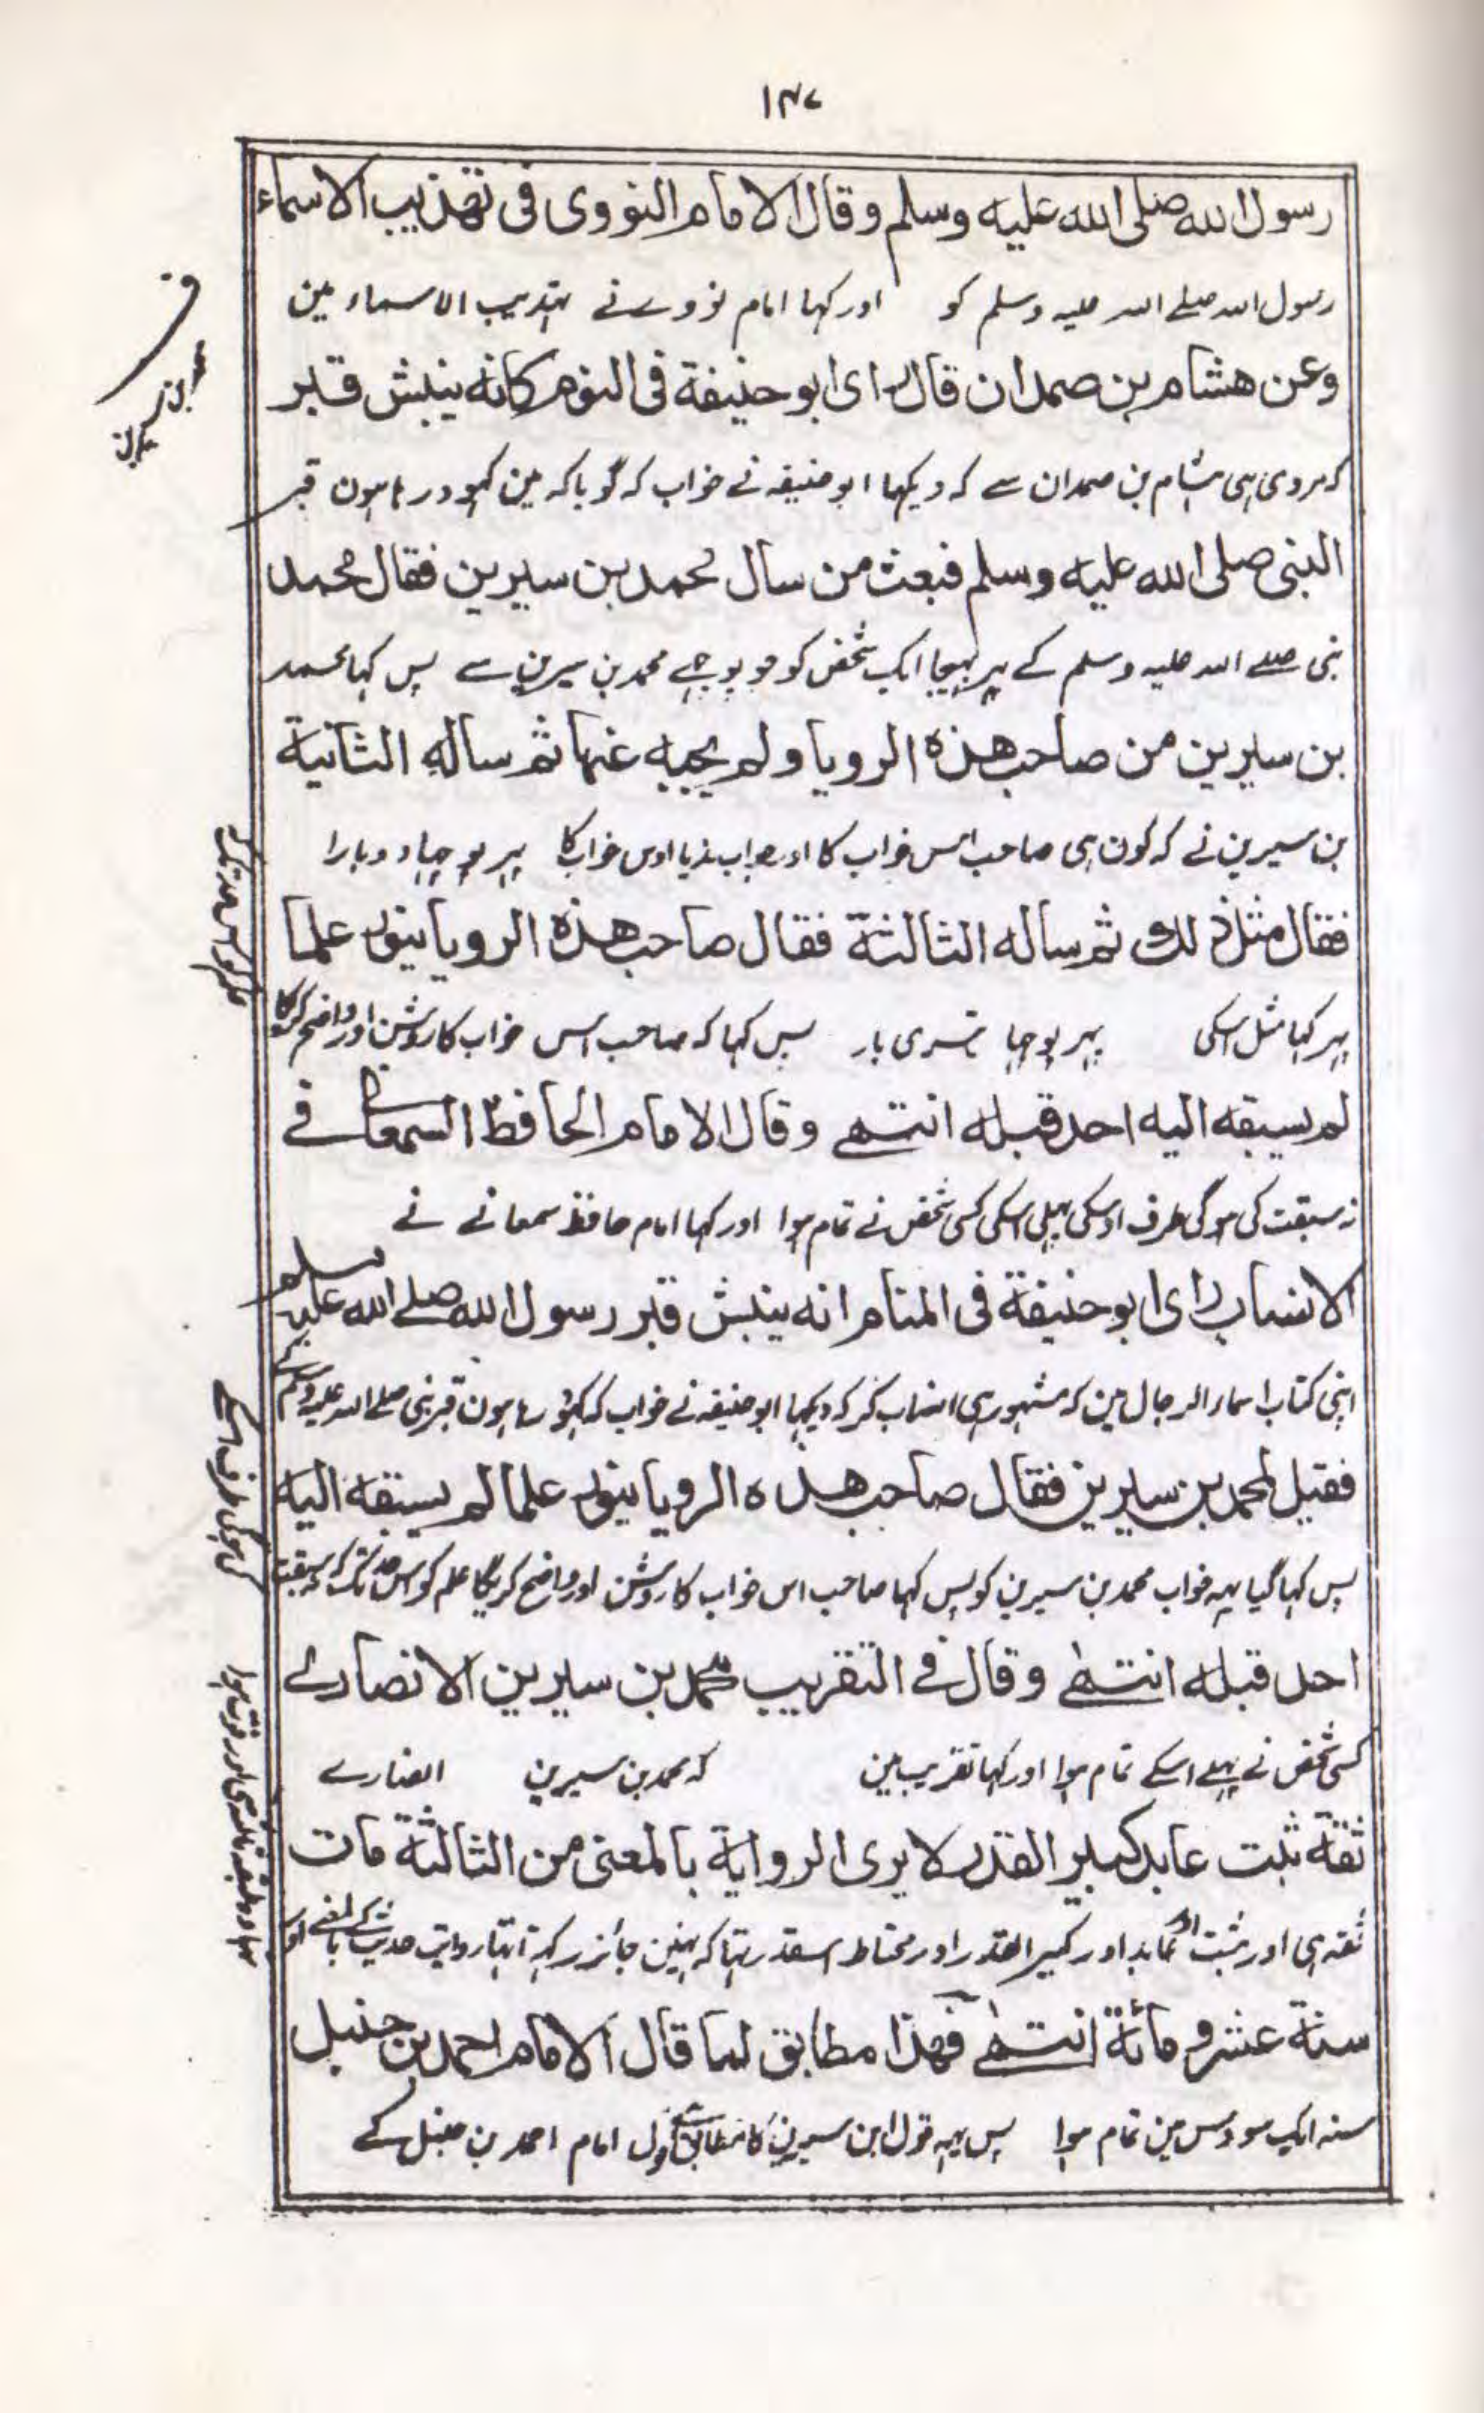 ۱۴۷
رسول الله صلى الله عليه وسلم وقال الامام النووى فى تهذيب الاسماء
رسول اللہ صلے اللہ علیہ وسلم کو اور کہا امام نووے نے تہذیب الاسماء مین
وعن هشام بن صمدان قال راى ابو حنيفة فى النوم كانه ينبش قبر
کہ مروی ہی ہشام بن صمدان سے کہ دیکہا ابو حنیفہ نے خواب کہ گویا کہ مین کہود رہا ہون قبر
النبى صلى الله عليه وسلم فبعث من سال محمد بن سيرين فقال محمد
نبی صلے اللہ علیہ وسلم کے پہر بہیجا ایک شخص کو جو پوچہے محمد بن سیرین سے پس کہا محمد
بن سيرين من صاحب هذه الرويا ولم يجبه عنها ثم ساله الثانية
بن سیرین نے کہ کون ہی صاحب اس خواب کا اور جواب ندیا اوس خواب کا پہر پوچہا دوبارا
فقال مثل ذلك ثم ساله الثالثة فقال صاحب هذه الرويا ينور علما
پہر کہا مثل اسکی پہر پوچہا تیسری بار پس کہا کہ صاحب اس خواب کا روشن اور واضح کریگا
لم يسبقه اليه احد قبله انتهے وقال الامام الحافظ السمعانے فے
نہ سبقت کی ہوگی طرف اوسکی پہلی اسکی کسی شخص نے تمام ہوا اور کہا امام حافظ سمعانے نے
الانساب راى ابو حنيفة فى المنام انه ينبش قبر رسول الله صلے الله عليه وسلم
اپنی کتاب اسماء الرجال مین کہ مشہور ہی انساب کر کہ دیکہا ابو حنیفہ نے خواب کہ کہود رہا ہون قبر نبی صلے اللہ علیہ وسلم کے
فقيل لمحمد بن سيرين فقال صاحب هذه الرويا ينور علما لم يسبقه اليه
پس کہا گیا یہہ خواب محمد بن سیرین کو پس کہا صاحب اس خواب کا روشن اور واضح کریگا علم کو اس حد تک کہ نہ سبقت
احد قبله انتهے وقال فے التقريب محمد بن سيرين الانصارے
کسی شخص نے پہلے اسکے تمام ہوا اور کہا تقریب مین کہ محمد بن سیرین انصارے
ثقة ثبت عابد كبير القدر لا يرى الرواية بالمعنى من الثالثة مات
ثقہ ہی اور ثبت اور عابد اور کبیر القدر اور محتاط اسقدر تہا کہ نہین جائز رکہتا تہا روایت حدیث کے بالمعنے اور
سنة عشر ومائة انتهے فهذا مطابق لما قال الامام احمد بن حنبل
سنہ ایک سو دس مین تمام ہوا پس یہہ قول ابن سیرین کا مطابق ہے قول امام احمد بن حنبل کے
علم کو اس حد تک کہ
کی ہوگی طرف اسکے